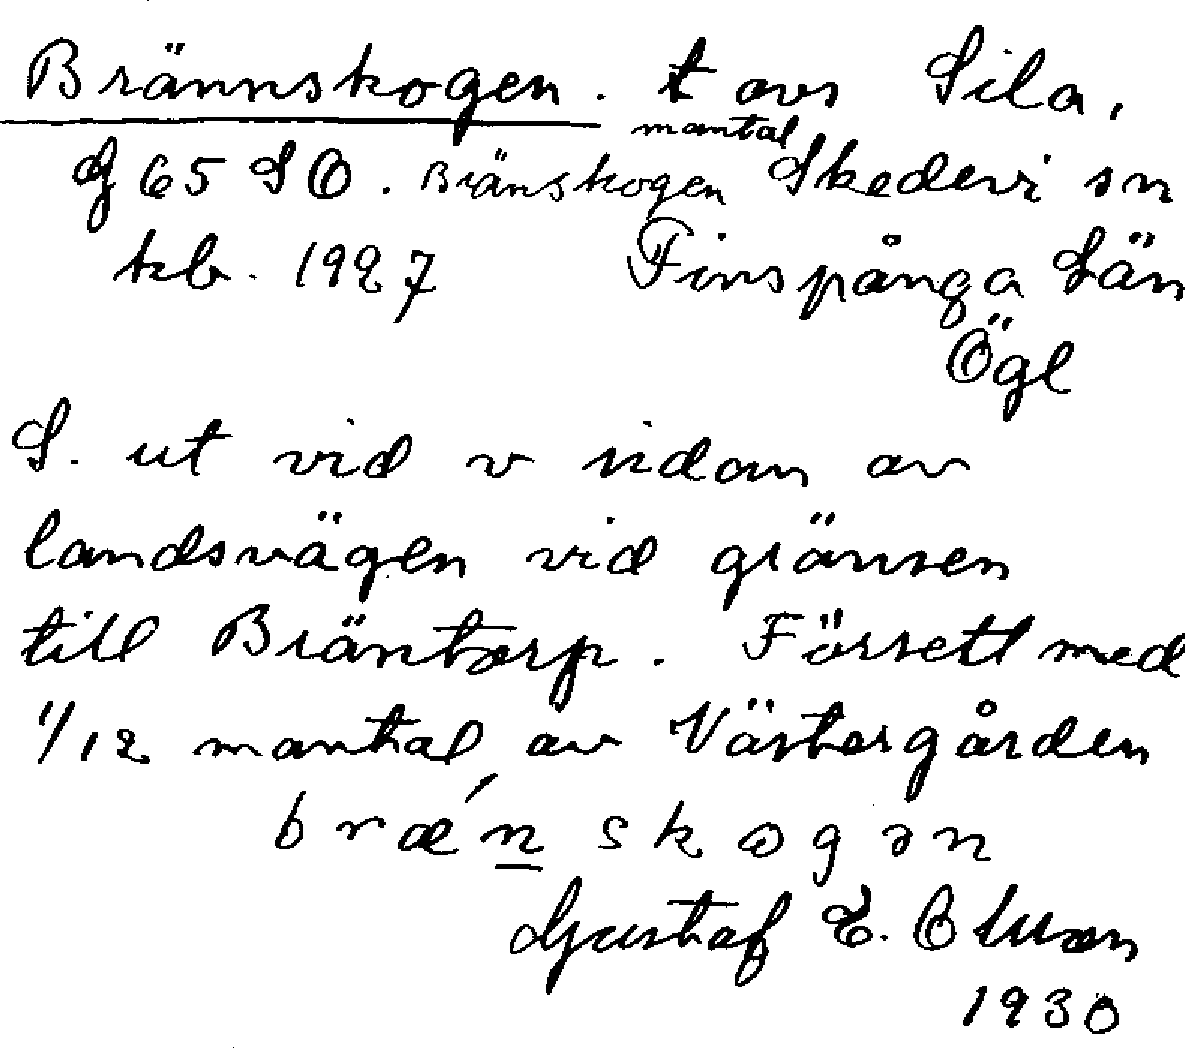 Brännskogen. t avs Sila,
mantal
G 65 SO. Bränskogen Skedevi sn
kb. 1927 Finspånga Län
Ögl
S. ut vid v sidan av
landsvägen vid gränsen
till Bräntorp. Försett med
1/12 mantal av Västergården
bræ´n skogən
Gustaf E. Olsson
1930